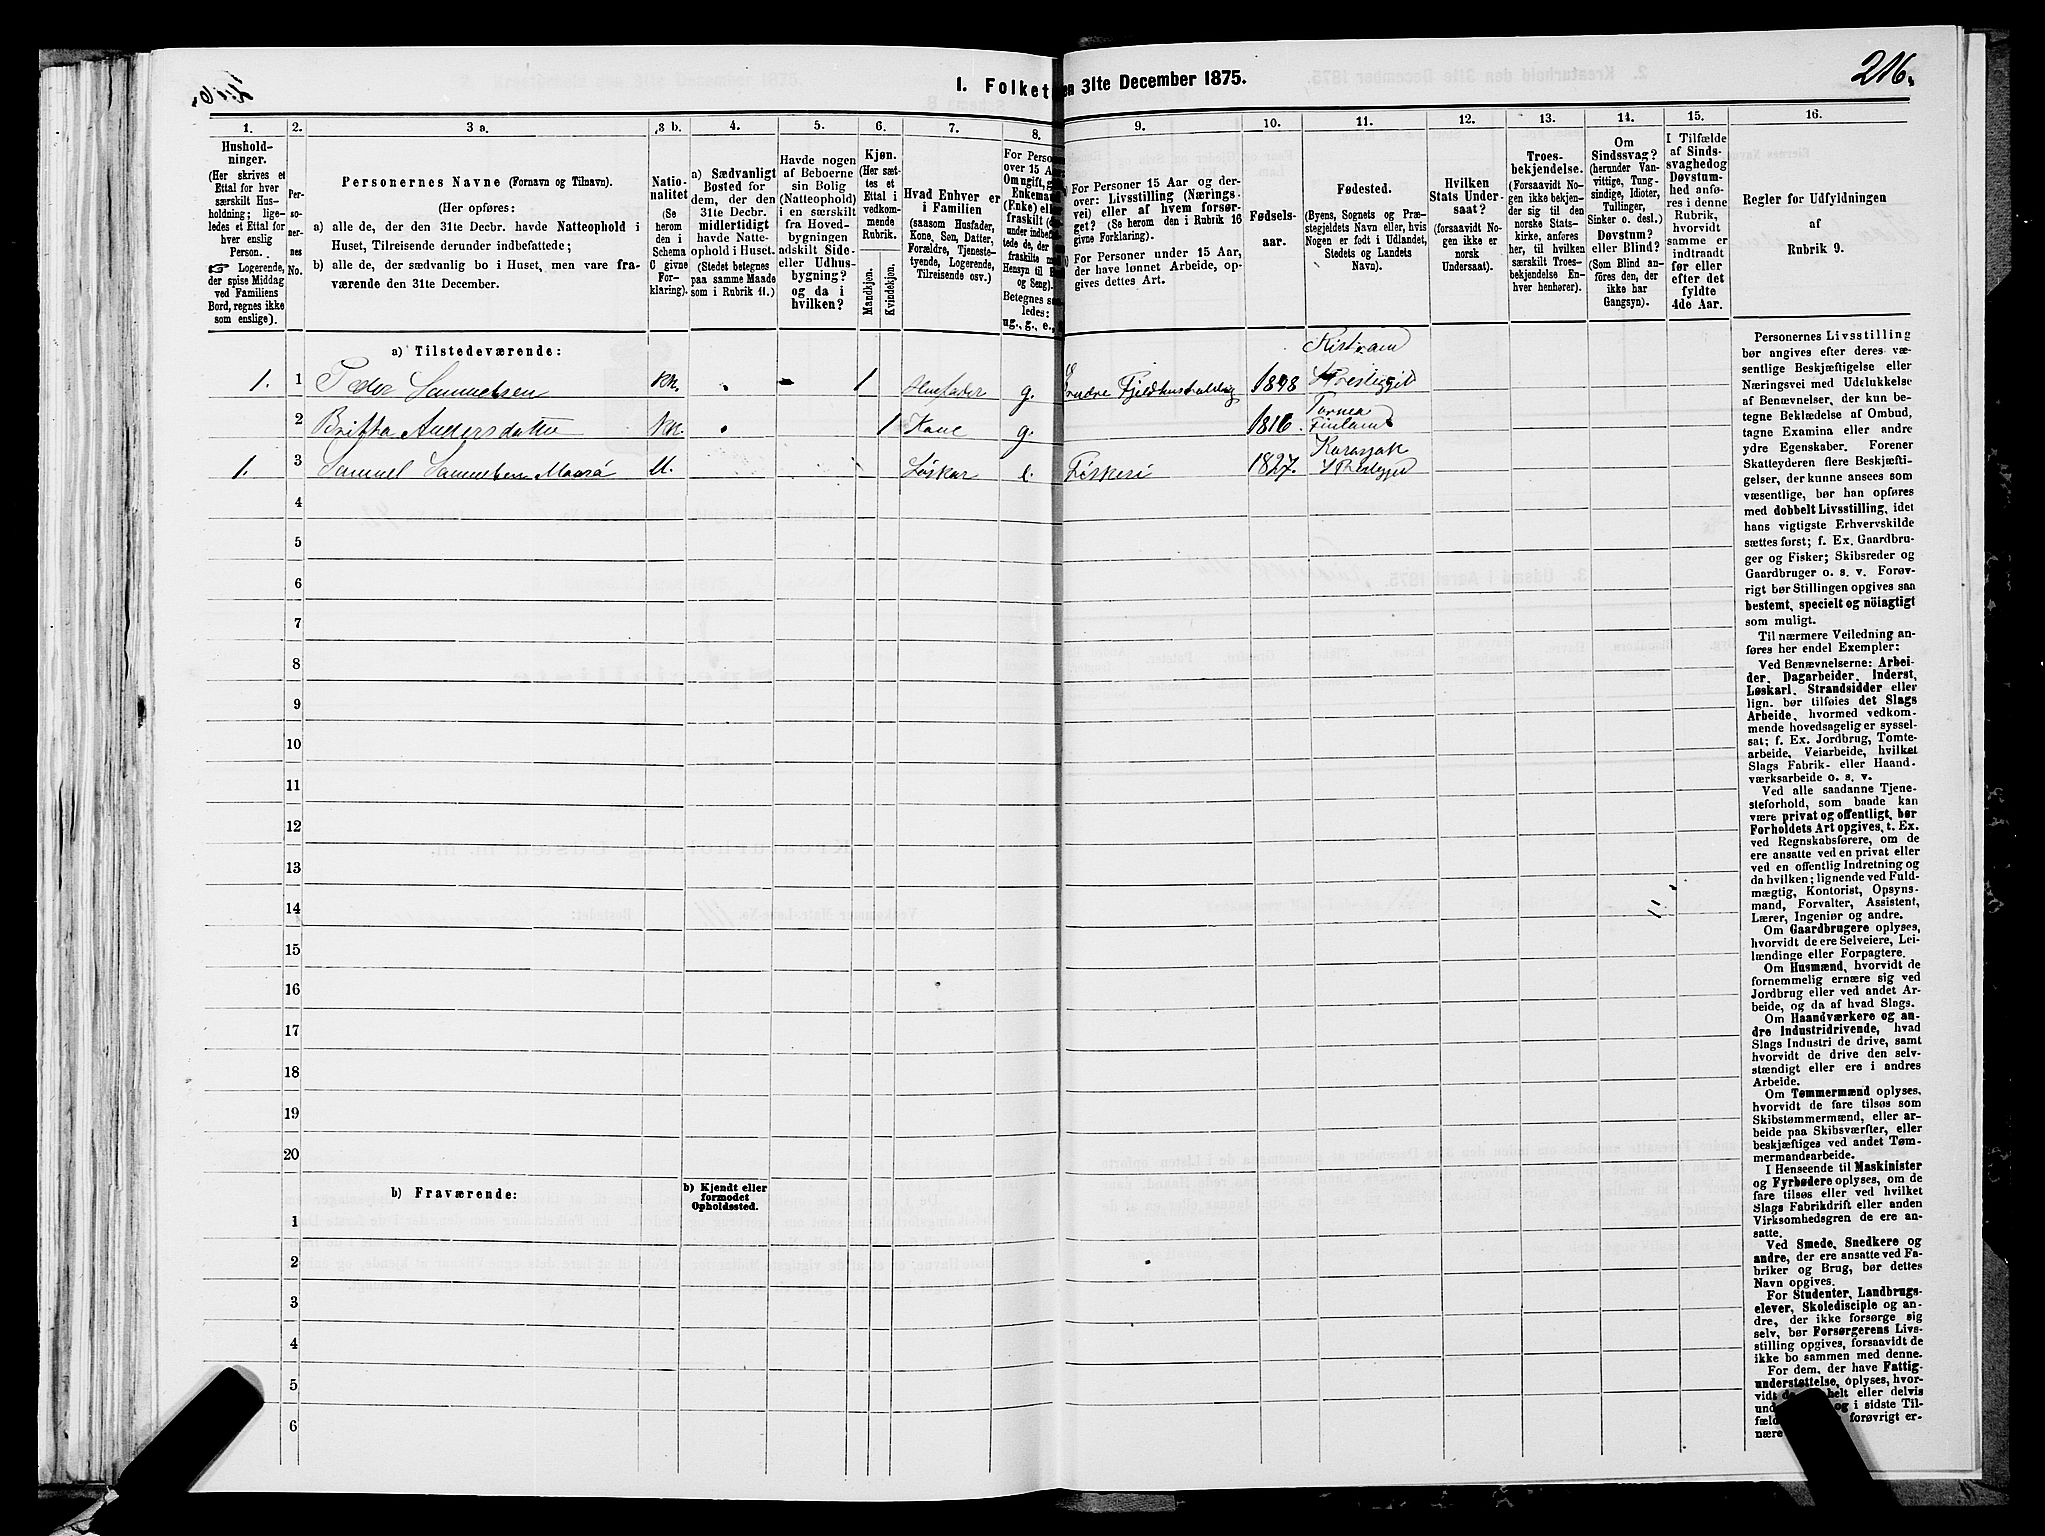 216.
I. Folket
en 31te December 1875.
1.
2.
3 a.
3 b.
4.
5.
6.
7.
8.
9.
10.
11.
12.
13.
14.
15.
16.
Hushold-
ninger.
(Her skrives et
Ettal for hver
særskilt Hus-
holdning; lige-
ledes et Ettal for
hver enslig
Person.
☞ Logerende,
der spise Middag
ved Familiens
Bord, regnes ikke
som enslige).
Per-
so-
ner-
nes
No.
Personernes Navne (Fornavn og Tilnavn).
(Her opføres:
a) alle de, der den 31te Decbr. havde Natteophold i
Huset, Tilreisende derunder indbefattede;
b) alle de, der sædvanlig bo i Huset, men vare fra-
værende den 31te December.
Natio-
nalitet
(Se
herom
den i
Schema
C givne
For-
klaring).
a) Sædvanligt
Bosted for
dem, der den
31te Decbr.
midlertidigt
havde Natte-
ophold i Huset.
(Stedet betegnes
paa samme Maade
som i Rubrik 11.)
Havde nogen
af Beboerne
sin Bolig
(Natteophold)
i en særskilt
fra Hoved-
bygningen
adskilt Side-
eller Udhus-
bygning?
og da i
hvilken?
Kjøn.
(Her sæt-
tes et
Ettal i
vedkom-
mende
Rubrik.
Mandkjøn.
Kvindekjøn.
Hvad Enhver er
i Familien
(saasom Husfader,
Kone, Søn, Datter,
Forældre, Tjeneste-
tyende, Logerende,
Tilreisende osv.)
For Person
over 15 Aar
Omugift, g
Enkema
(Enke) ell
fraskilt (
under indbef
tede de, der
fraskilte m
Hensyn til B
og Seng).
Betegnes s
ledes:
ug., g., e.,
For Personer 15 Aar og der-
over: Livsstilling (Nærings-
vei) eller af hvem forsør-
get? (Se herom den i Rubrik 16
givne Forklaring).
For Personer under 15 Aar,
der have lønnet Arbeide, op-
gives dettes Art.
Fødsels-
aar.
Fødested.
(Byens, Sognets og Præ-
stegjeldets Navn eller, hvis
Nogen er født i Udlandet,
Stedets og Landets
Navn).
Hvilken
Stats Under-
saat?
(forsaavidt No-
gen ikke er
norsk
Undersaat).
Troes-
bekjendelse.
(Forsaavidt No-
gen ikke bekjen-
der sig til den
norske Stats-
kirke, anføres
her, til hvilken
særskilt Troes-
bekjendelse En-
hver henhører).
Om
Sindssvag?
(herunder Van-
vittige, Tung-
sindige, Idioter,
Tullinger,
Sinker o. desl.)
Døvstum?
eller Blind?
(Som Blind an-
føres den, der
ikke har
Gangsyn).
I Tilfælde
af Sinds-
svaghed og
Døvstum-
hed anfø-
res i denne
Rubrik,
hvorvidt
samme er
indtraadt
før eller
efter det
fyldte
4de Aar.
Regler for Udfyldningen
af
Rubrik 9.
a) Tilstedeværende:
1. 1 Peder Samuelsen 1 Husfader g. 1848
2 Britta Andersdatter 1 Kone g. 1816. Tornea Finland
1. 3 Samuel Samuelsen Løskar e. Fiskeri 1827. Karasjok
4
5
6
7
8
9
10
11
12
13
14
15
16
17
18
19
20
b) Fraværende:
b) Kjendt eller
formodet
Opholdssted.
1
2
3
4
5
6
Personernes Livsstilling
bør angives efter deres væ-
sentlige Beskjæftigelse eller
Næringsvei med Udelukkelse
af Benævnelser, der kun be-
tegne Beklædelse af Ombud,
tagne Examina eller andre
ydre Egenskaber. Forener
Skatteyderen flere Beskjæfti-
gelser, der kunne ansees som
væsentlige, bør han opføres
med dobbelt Livsstilling, idet
hans vigtigste Erhvervskilde
sættes først; f. Ex. Gaardbru-
ger og Fisker; Skibsreder og
Gaardbruger o. s. v. Forøv-
rigt bør Stillingen opgives saa
bestemt, specielt og nöiagtigt
som muligt.
Til nærmere Veiledning an-
føres her endel Exempler:
Ved Benævnelserne: Arbei-
der, Dagarbeider, Inderst,
Løskarl, Strandsidder eller
lign. bør tilføies det Slags
Arbeide, hvormed vedkom-
mende hovedsagelig er syssel-
sat; f. Ex. Jordbrug, Tomte-
arbeide, Veiarbeide, hvilket
Slags Fabrik- eller Haand-
værksarbeide o. s. v.
Ved alle saadanne Tjene-
steforhold, som baade kan
være privat og offentligt, bør
Forholdets Art opgives, t. Ex.
ved Regnskabsførere, om de
ere ansatte ved en privat eller
ved en offentlig Indretning og
da hvilken; lignende ved Fuld-
mægtig, Kontorist, Opsyns-
mand, Forvalter, Assistent,
Lærer, Ingeniør og andre.
Om Gaardbrugere oplyses,
hvorvidt de ere Selveiere, Lei-
lændinge eller Forpagtere.
Om Husmænd, hvorvidt de
fornemmelig ernære sig ved
Jordbrug eller ved andet Ar-
beide, og da af hvad Slags.
Om Haandværkere og an-
dre Industridrivende, hvad
Slags Industri de drive, samt
hvorvidt de drive den selv-
stændigt eller ere i andres
Arbeide.
Om Tømmermænd oplyses,
hvorvidt de fare tilsøs som
Skibstømmermænd, eller ar-
beide paa Skibsværfter, eller
beskjæftiges ved andet Tøm-
mermandsarbeide.
I Henseende til Maskinister
og Fyrbødere oplyses, om de
fare tilsøs eller ved hvilket
Slags Fabrikdrift eller anden
Virksomhedsgren de ere an-
satte.
Ved Smede, Snedkere og
andre, der ere ansatte ved Fa-
briker og Brug, bør dettes
Navn opgives.
For Studenter, Landbrugs-
elever, Skoledisciple og an-
dre, der ikke forsørge sig
selv, bør Forsørgerens Livs-
stilling opgives, forsaavidt de
ikke bo sammen med denne.
For dem, der have Fattig-
understøttelse, oplyses, hvor-
vidt de helt eller delvis
und og i sidste Til-
fæld forøvrigt er-
nære